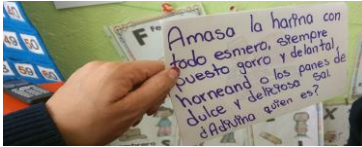 Amasa la harina con
todo esmero, siempre
puesto gorro y delantal,
horneando los panes de
dulce y deliciosa sal
¿Adivina quien es?
49
50
59
60
F